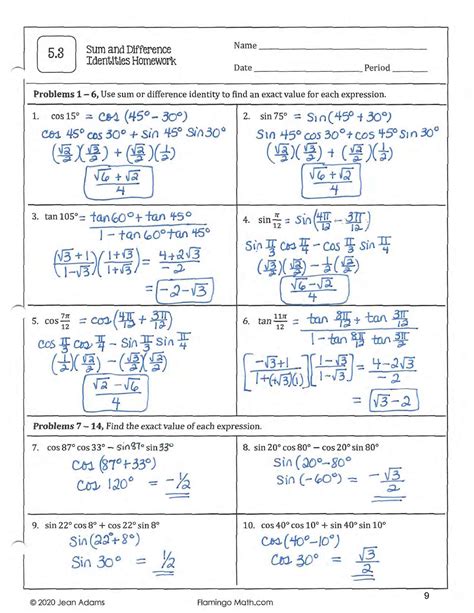 5.3
Sum and Difference
Identities Homework
Name
Date Period
Problems 1 – 6, Use sum or difference identity to find an exact value for each expression.
1. cos 15° = cos (45° - 30°)
cos 45° cos 30° + sin 45° sin 30°
(√2/2)(√3/2) + (√2/2)(1/2)
(√6 + √2)/4
2. sin 75° = sin(45° + 30°)
sin 45° cos 30° + cos 45° sin 30°
(√2/2)(√3/2) + (√2/2)(1/2)
(√6 + √2)/4
3. tan 105° = (tan 60° + tan 45°)/(1 - tan 60° tan 45°)
((√3 + 1)/(1 - √3))((1 + √3)/(1 + √3)) = (4 + 2√3)/(-2)
= -2 - √3
4. sin π/12 = sin(4π/12 - 3π/12)
sin π/3 cos π/4 - cos π/3 sin π/4
(√3/2)(√2/2) - 1/2(√2/2)
(√6 - √2)/4
5. cos 7π/12 = cos(4π/12 + 3π/12)
cos π/3 cos π/4 - sin π/3 sin π/4
(1/2)(√2/2) - (√3/2)(√2/2)
(√2 - √6)/4
6. tan 11π/12 = (tan 8π/12 + tan 3π/12)/(1 - tan 8π/12 tan 3π/12)
[(-√3 + 1)/(1 + (√3)(1))][(1 - √3)/(1 - √3)] = (4 - 2√3)/(-2)
= √3 - 2
Problems 7 – 14, Find the exact value of each expression.
7. cos 87° cos 33° – sin 87° sin 33°
cos (87° + 33°)
cos 120° = -1/2
8. sin 20° cos 80° – cos 20° sin 80°
sin (20° - 80°)
sin (-60°) = -√3/2
9. sin 22° cos 8° + cos 22° sin 8°
sin (22° + 8°)
sin 30° = 1/2
10. cos 40° cos 10° + sin 40° sin 10°
cos (40° - 10°)
cos 30° = √3/2
9
© 2020 Jean Adams Flamingo Math.com